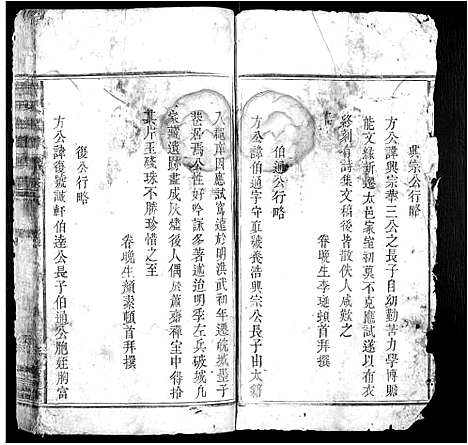 興宗公行略
方公諱興宗華三公之長子自幼勤苦力學博贍
能文緣新遷太邑家室初莫不克應試遂以布衣
終刻有詩集文稿後皆散佚人咸歎之
眷晚生李頓首拜撰
伯通公行略
方公諱伯通字守夏號養浩興宗公長子由太籍
入範庠因應試寫遠於明洪武初年遷皖城墨子
巷居焉公性好吟詠多著述迨明季左兵破城凡
家藏遺跡盡成灰燼後人偶於蕭齋禪室中得拾
其片玉殘珠不勝珍惜之至
眷晚生顏素頓首拜撰
復公行略
方公諱復號誠軒伯達公長子伯通公胞姪荊富